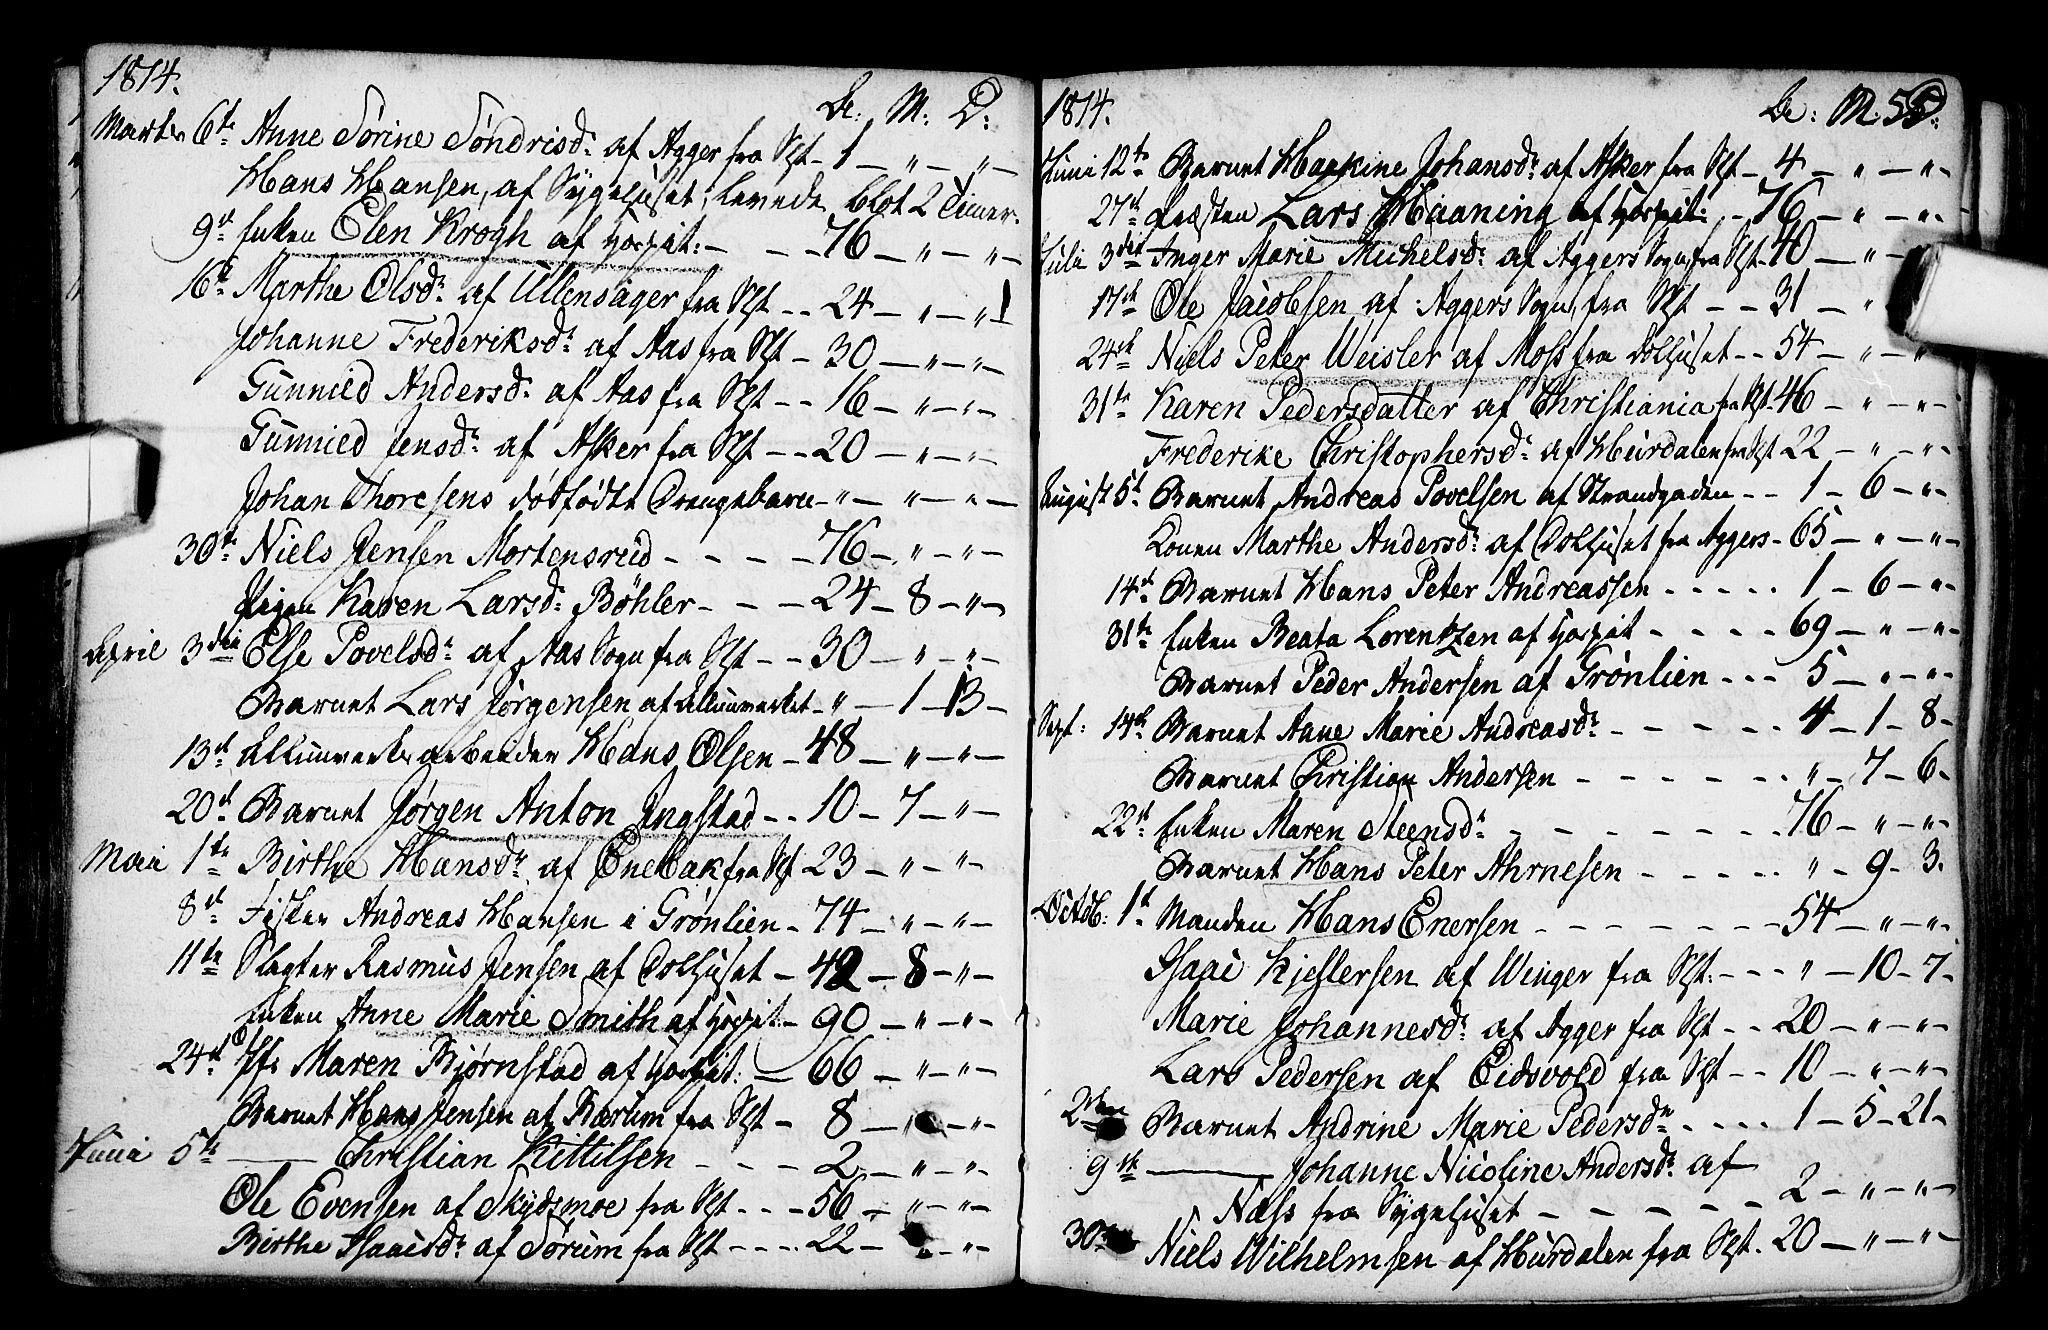 1814.
Aar: M: D:
Martii 6te Anne Sørine Søndrisdr. af Agger fra Sgt - 1 - " - " -
Hans Hansen, af Sygehuset, levede blot 2 Timer.
9d Enken Elen Krogh af Hospit: - - - 76 - " - " -
16d Marthe Olsdr. af Ullensager fra Sgt - - 24 - " - " 1
Johanne Frederiksdr. af Aas fra Sgt - 30 - " - " -
Gunnild Andersdr. af Aas fra Sgt - - 16 - " - " -
Gunnild Jensdr. af Asker fra Sgt - - 20 - " - " -
Johan Thoresens dødfødte Drengebarn - " - " - " -
30te Niels Jensen Mortensrud - - - - 76 - " - " -
Pigen Karen Larsdr. Bøhler - - - 24 - 8 - " -
April 3die Else Povelsdr. af Aas Sogn fra Sgt - - 30 - " - " -
Barnet Lars Jørgensen af Allunverket - " - 1 - 13 -
13d Allunverksarbeider Hans Olsen - 48 - " - " -
20d Barnet Jørgen Anton Jngstad - - 10 - 7 - " -
Maii 1te Birthe Hansdr. af Enebak fra Sgt 23 - " - "
8d Fisker Andreas Hansen i Grønlien - 74 - " - " -
11te Slagter Rasmus Jensen af Dolhuset - 42 - 8 - " -
Enken Anne Marie Smith af Hospit - 90 - " - " -
24d Jfr Maren Bjørnstad af Hospit: - 66 - " - " -
Barnet Hans Jensen af Bærum fra Sgt - 8 - - " -
Junii 5te ——— Christian Kittilsen - - - - 2 - " - " -
Ole Evensen af Skydsmoe fra Sgt - - - 56 - " - " -
Birthe Isaacsdr. af Sørum fra Sgt - - - - 22 - - " -
1814.
Aar: M: D: 55
Junii 12te Barnet Haakine Johansdr. af Asker fra Sgt - 4 - " - " -
27d Præsten Lars Haaning af Hospit: - 76 - " - " -
Julii 3die Inger Marie Michelsdr. af Aggers Sogn fra Sgt - 40 - "
17d Ole Jacobsen af Aggers Sogn, fra Sgt - - 31 - "
24d Niels Peter Weisler af Moss fra Dolhuset - - 54 - " - "
31te Karen Pedersdatter af Christiania fra Sgt - 46 - " - " -
Frederike Christophersdr. af Hurdalen fra Sgt 22 - " - " -
August 5t Barnet Andreas Povelsen af Strandgaden - - 1 - 6 - " -
Konen Marthe Andersdr. af Dolhuset fra Aggers - 65 - " - " -
14d Barnet Hans Peter Andreassen - - - - - 1 - 6 - " -
31te Enken Beata Lorentzen af Hospit - - - - 69 - " - " -
Barnet Peder Andersen af Grønlien - - - 5 - " - " -
Sept: 14d Barnet Anne Marie Andreasdr. - - - - - 4 - 1 - 8 -
Barnet Christian Andersen - - - - - - " - 7 - 6 -
22d Enken Maren Steensdr. - - - - - - - 76 - " - " -
Barnet Hans Peter Ahrnesen - - - - - " - 9 - 3.
Octob: 1d Manden Hans Enersen - - - - - - - 54 - " - " -
Isaac Kjeslersen af Winger fra Sgt: - - - " - 10 - 7 -
Marie Johannesdr. af Agger fra Sgt - - 20 - " - " -
Lars Pedersen af Eidsvold fra Sgt - - 10 - " - " -
2den Barnet Andrine Marie Pedersdr. - - - - 1 - 5 - 21 -
9de ——— Johanne Nicoline Andersdr. af
Næss fra Sygehuset - - - - - - 2 - " - " -
30te Niels Wilhelmsen af Hurdalen fra Sgt. 20 - " - " -